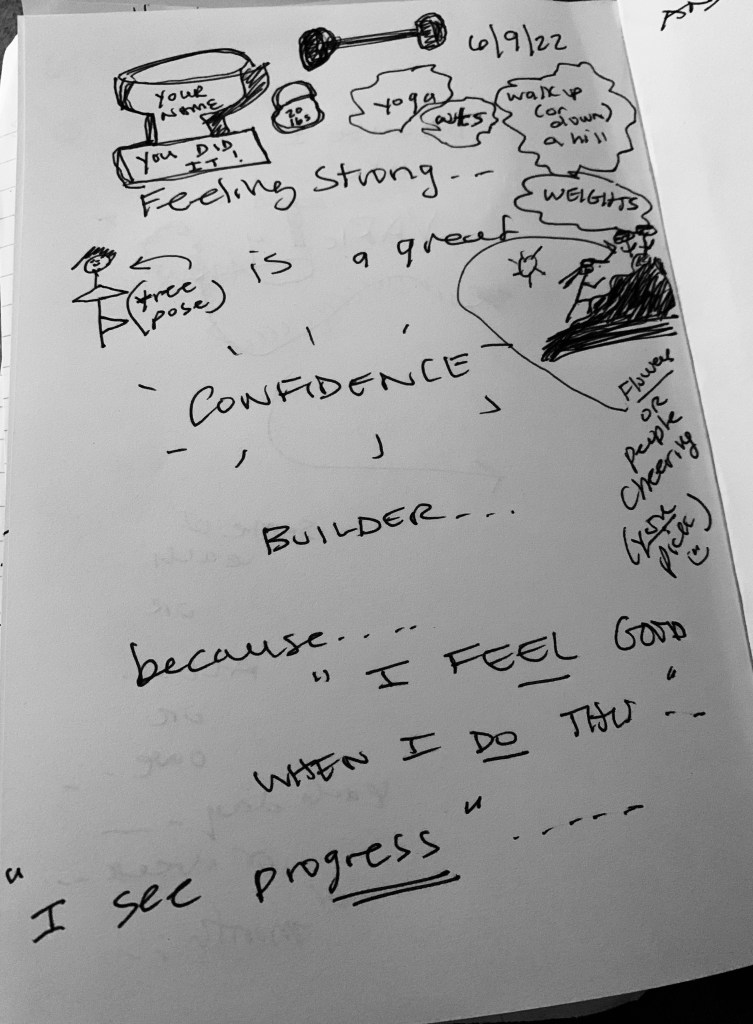 6/9/22
YOUR
NAME
YOU DID
IT!
20
lbs
yoga
walk up
(or
down)
a hill
WEIGHTS
Feeling Strong...
(tree
pose)
is a great
CONFIDENCE
BUILDER...
Flowers
OR
people
cheering
(your
pick)
because.....
"I FEEL GOOD
WHEN I DO THIS"...
"I see progress"......